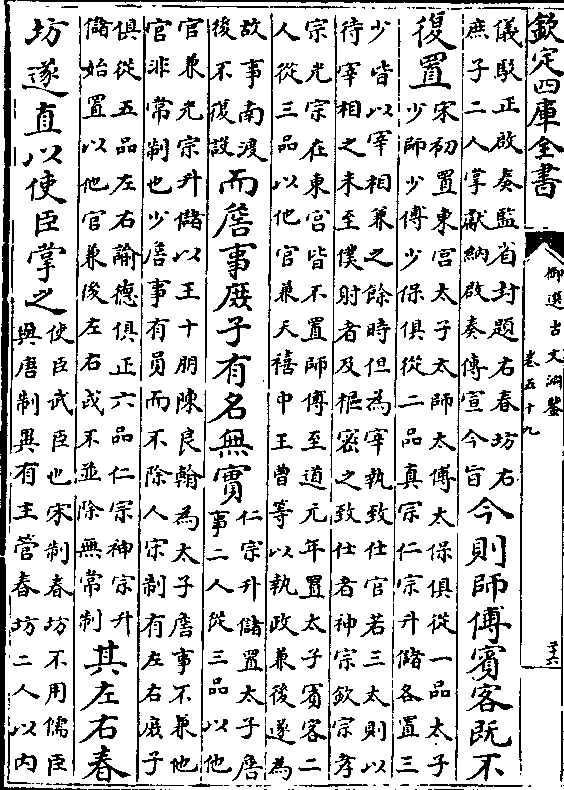 欽定四庫全書
御選古文淵鑒
卷五十九
儀駮正啟奏監省封題右春坊右
庶子二人掌獻納啟奏傳宣令旨
今則師傅賓客既不
復置
宋初置東宮太子太師太傅太保俱從一品太子
少師少傅少保俱從二品真宗仁宗升儲各置三
少皆以宰相兼之餘時但為宰執致仕官若三太則以
待宰相之未至僕射者及樞密之致仕者神宗欽宗孝
宗光宗在東宮皆不置師傅至道元年置太子賓客二
人從三品以他官兼天禧中王曾等以執政兼後遂為
故事南渡
後不復設
而詹事庶子有名無實
仁宗升儲置太子詹
事二人從三品以他
官兼光宗升儲以王十朋陳良翰為太子詹事不兼他
官非常制也少詹事有員而不除人宋制有左右庶子
俱從五品左右諭德俱正六品仁宗神宗升
儲始置以他官兼後左右或不並除無常制
其左右春
坊遂直以使臣掌之
使臣武臣也宋制春坊不用儒臣
與唐制異有主管春坊二人以內